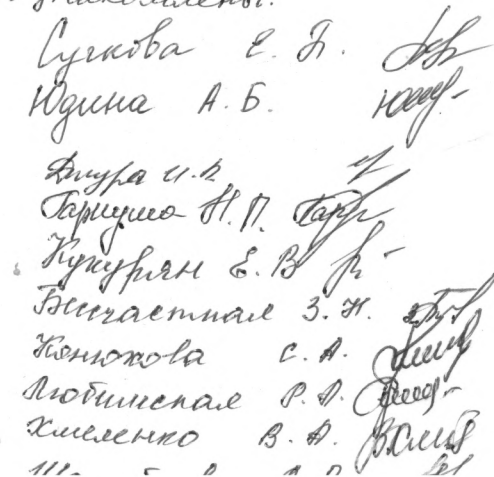 Сучкова Е. П.
Юдина А. Б.
Джура И. В.
Гаркуша Н. П. Гарк
Кукурян Е. В
Бесчастная З. Н.
Конюхова С. А.
Любимская Р. А.
Хмеленко В. А.